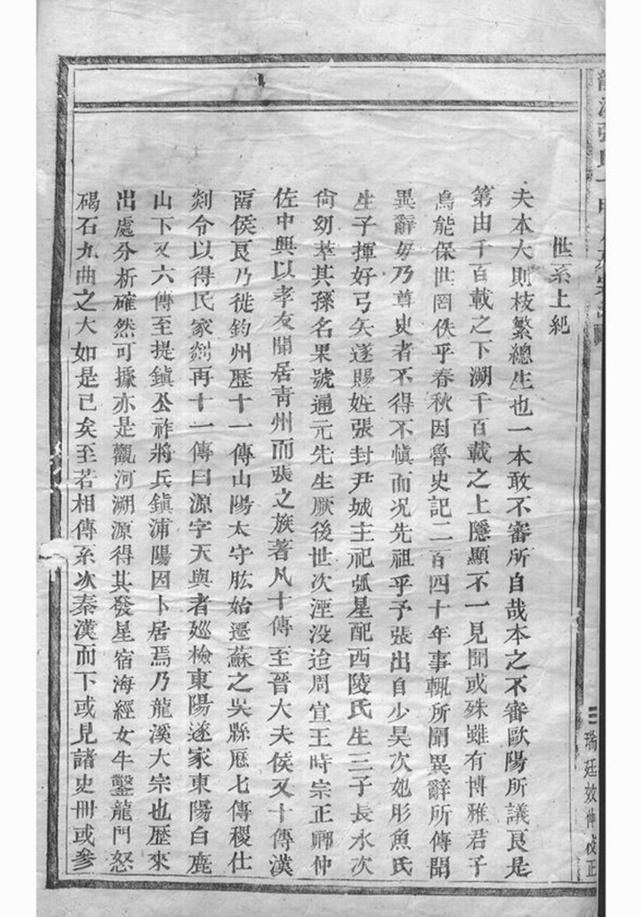 世系上紀
夫本大則枝繁總生也一本敢不審所自哉本之不審歐陽所議良是
第由千百載之下溯千百載之上隱顯不一見聞或殊雖有博雅君子
烏能保世罔佚乎春秋因魯史記二百四十年事輒所聞異辭所傳聞
異辭毋乃尊史者不得不愼而况先祖乎予張出自少昊次妃彤魚氏
生子揮好弓矢遂賜姓張封尹城主祀弧星配西陵氏生三子長永次
尙幼萃其孫名果號通元先生厥後世次湮没迨周宣王時宗正卿仲
佐中興以孝友聞居青州而張之族著凡十傳至晉大夫侯又十傳漢
畱侯良乃徙鈞州歷十一傳山陽太守肱始遷蘇之吳縣歷七傳稷仕
剡令以得民家剡再十一傳曰源字天與者廵檢東陽遂家東陽白鹿
山下又六傳至提鎮公祚將兵鎮浦陽因卜居焉乃龍溪大宗也歷來
出處分析確然可據亦是觀河溯源得其發星宿海經女牛鑿龍門怒
碣石九曲之大如是已矣至若相傳系次秦漢而下或見諸史冊或參
瑞廷效仲校正